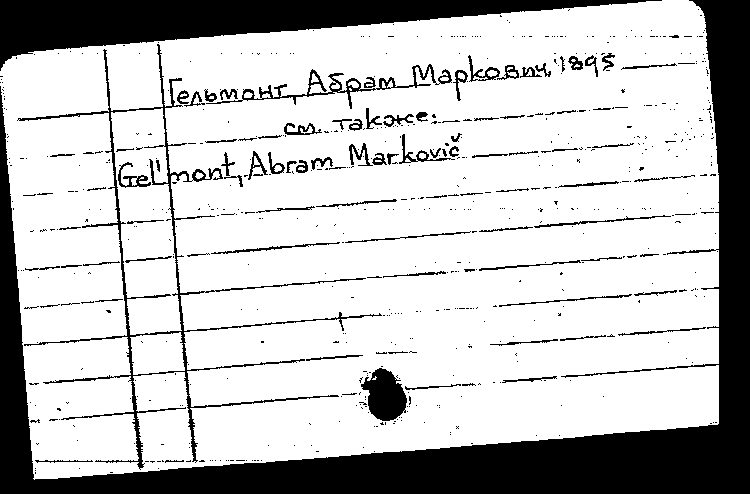 Гельмонт, Абрам Маркович, 1895
см. также:
Gel'mont, Abram Markovič